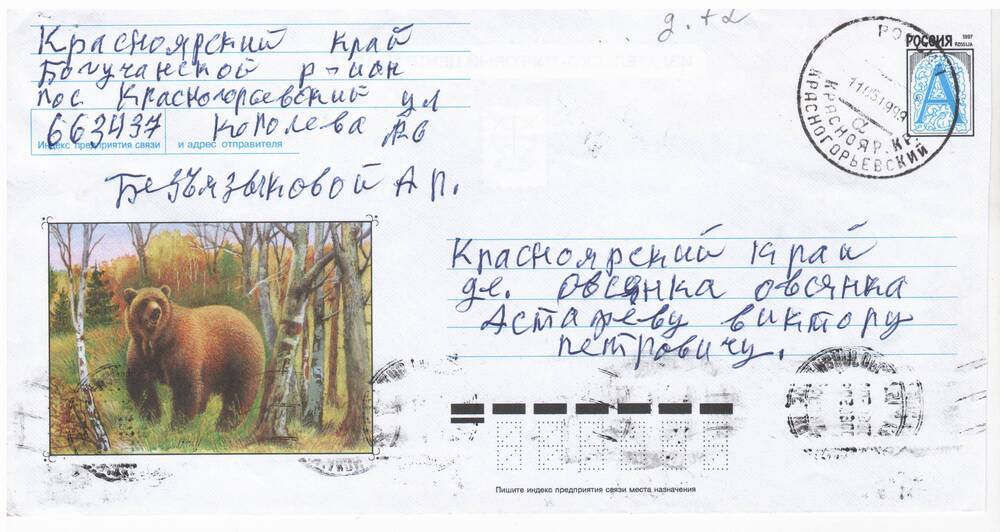 Красноярский край
Богучанской р-ион
пос Красногорьевский ул
663437 Королева
Индекс предприятия связи и адрес отправителя
Безъязыковой А П.
д. т2
РОССИЯ 1997
ROSSIJA
А
КРАСНОЯР. КР.
КРАСНОГОРЬЕВСКИЙ
Красноярский край
де. овсянка овсянка
Астафеву виктору
петровичу.
Пишите индекс предприятия связи места назначения